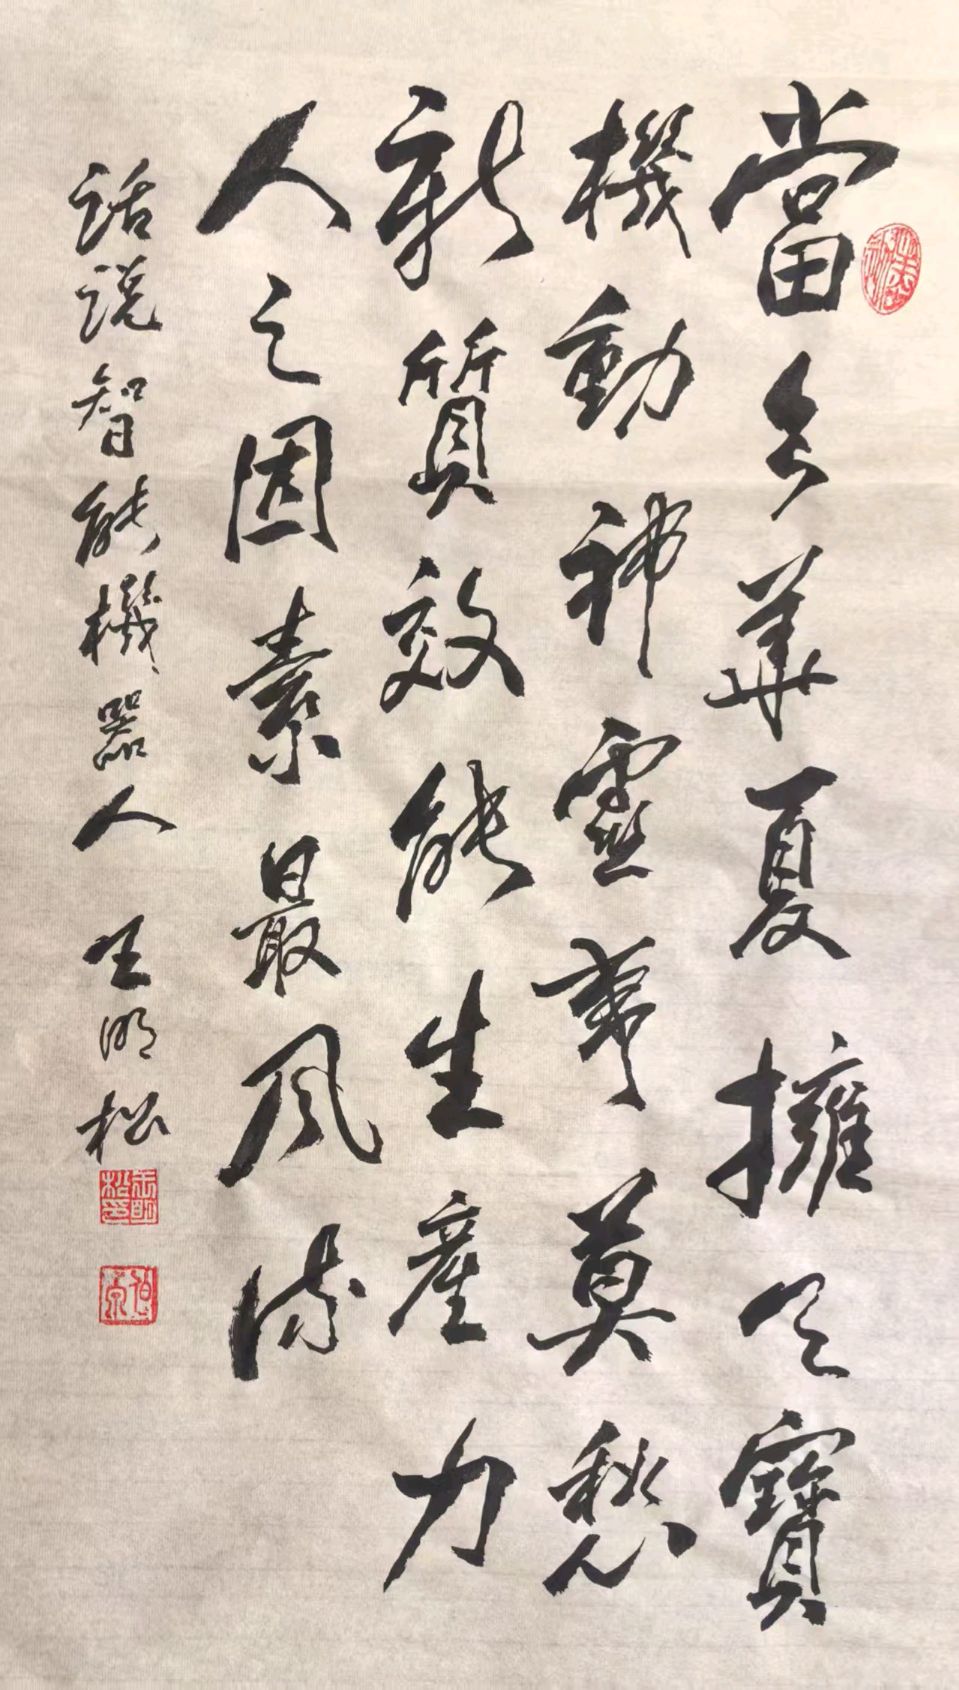 當今華夏擁天寶
機動神靈事莫愁
新質效能生產力
人之因素最風流
話說智能機器人 王明松